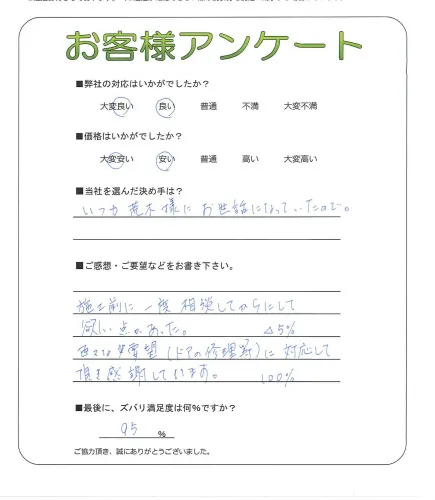 お客様アンケート
■弊社の対応はいかがでしたか？
大変良い 良い 普通 不満 大変不満
■価格はいかがでしたか？
大変安い 安い 普通 高い 大変高い
■当社を選んだ決め手は？
いつも荒木様にお世話になっていたので。
■ご感想・ご要望などをお書き下さい。
施工前に一度相談してからにして
欲しい点があった。 △5%
色々な要望(ドアの修理等)に対応して
頂き感謝しています。 100%
■最後に、ズバリ満足度は何％ですか？
95 %
ご協力頂き、誠にありがとうございました。